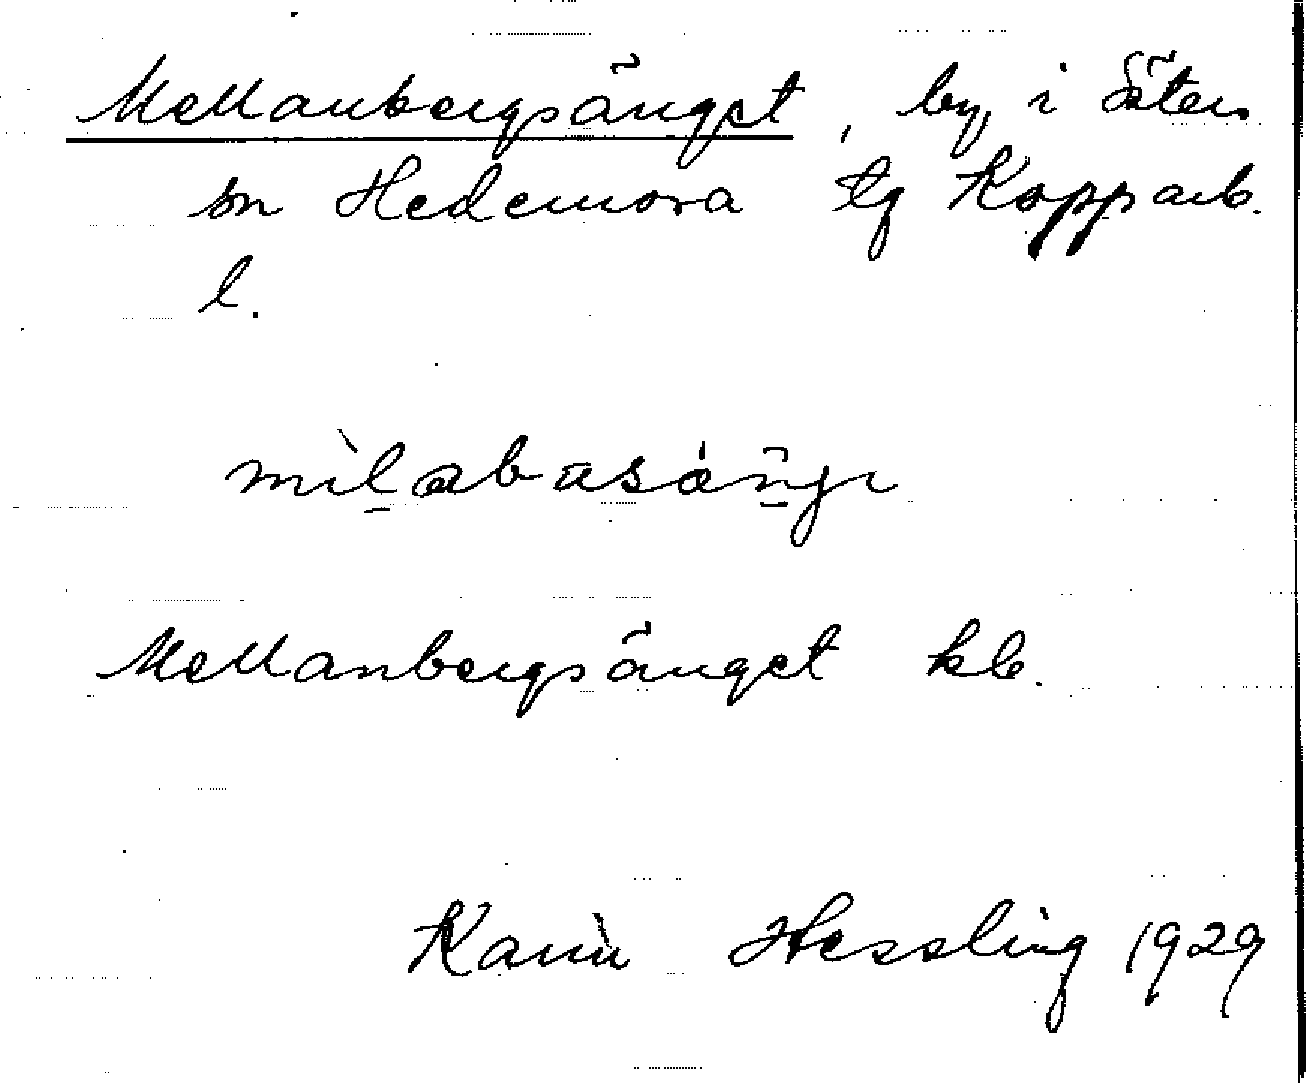 Mellanbergsänget, by, i Säters
sn Hedemora tg Kopparb.
l.
Mellanbergsänget kb.
Karin Hessling 1929